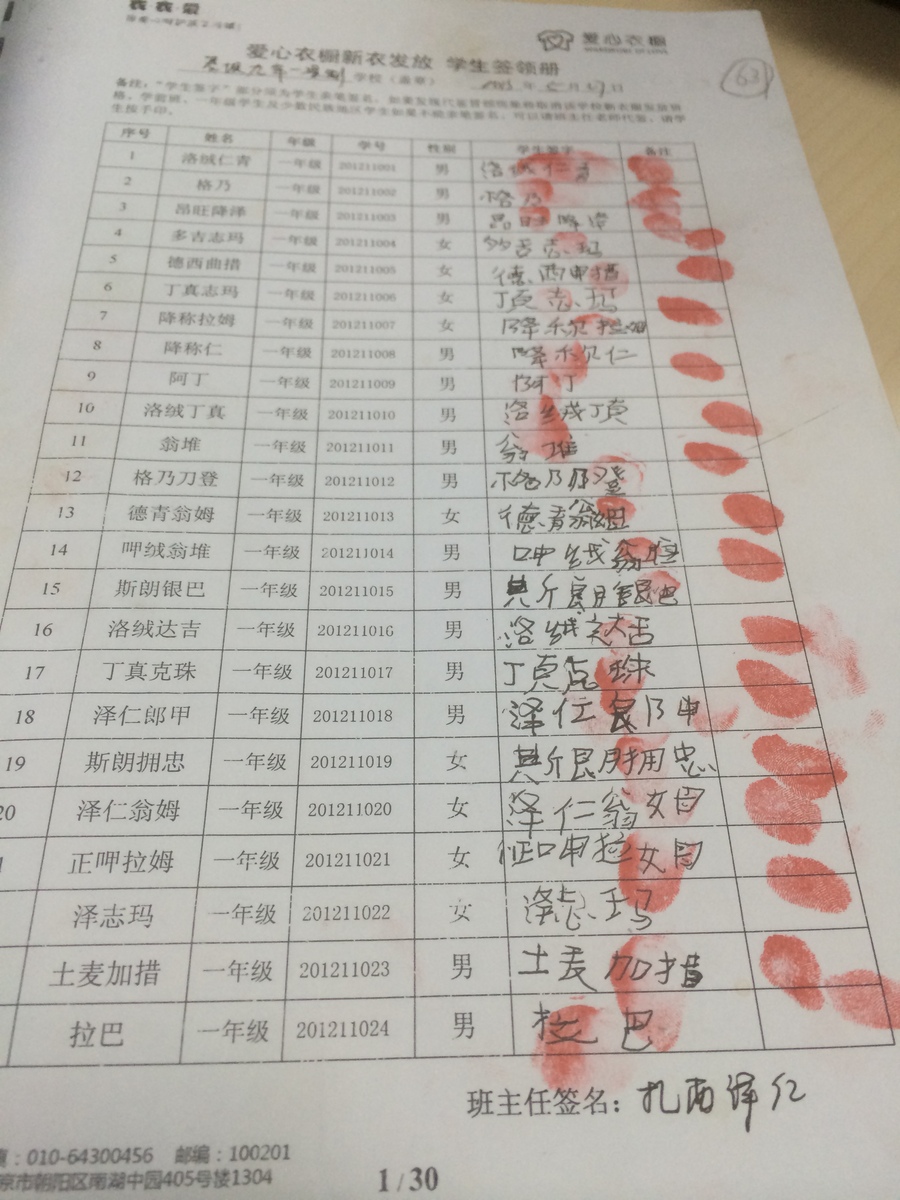 爱心衣橱
爱心衣橱新衣发放 学生签领册
学校（盖章） 年 月 日
63
备注："学生签字"部分须为学生亲笔签名，如果发现代签冒领现象将取消该学校新衣橱发放资
格。学前班、一年级学生及少数民族地区学生如果不能亲笔签名，可以请班主任老师代签，请学
生按手印。
序号 姓名 年级 学号 性别 学生签字 备注
1 洛绒仁青 一年级 201211001 男 洛绒仁青
2 格乃 一年级 201211002 男 格乃
3 昂旺降泽 一年级 201211003 男 昂旺降泽
4 多吉志玛 一年级 201211004 女 多吉志玛
5 德西曲措 一年级 201211005 女 德西曲措
6 丁真志玛 一年级 201211006 女 丁真志玛
7 降称拉姆 一年级 201211007 女 降称拉姆
8 降称仁 一年级 201211008 男 降称仁
9 阿丁 一年级 201211009 男 阿丁
10 洛绒丁真 一年级 201211010 男 洛绒丁真
11 翁堆 一年级 201211011 男 翁堆
12 格乃刀登 一年级 201211012 男 格乃刀登
13 德青翁姆 一年级 201211013 女 德青翁姆
14 呷绒翁堆 一年级 201211014 男 呷绒翁堆
15 斯朗银巴 一年级 201211015 男 斯朗银巴
16 洛绒达吉 一年级 201211016 男 洛绒达吉
17 丁真克珠 一年级 201211017 男 丁真克珠
18 泽仁郎甲 一年级 201211018 男 泽仁郎甲
19 斯朗拥忠 一年级 201211019 女 斯朗拥忠
20 泽仁翁姆 一年级 201211020 女 泽仁翁姆
正呷拉姆 一年级 201211021 女 征呷拉姆
泽志玛 一年级 201211022 女 泽志玛
土麦加措 一年级 201211023 男 土麦加措
拉巴 一年级 201211024 男 拉巴
班主任签名：扎西泽仁
真：010-64300456 邮编：100201
京市朝阳区南湖中园405号楼1304
1 / 30